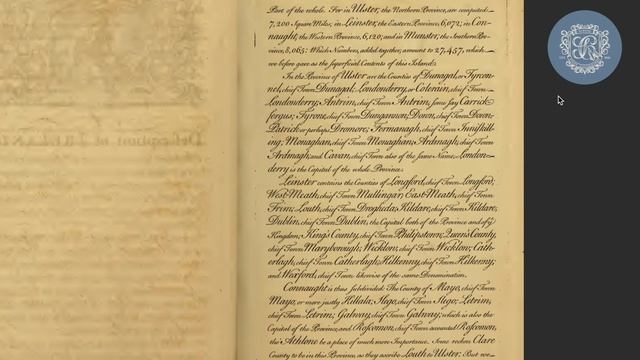 Part of the whole. For in Ulster, the Northern Province, are computed
7,200 Square Miles; in Leinster, the Eastern Province, 6,072; in Con-
naught, the Western Province, 6,120; and in Munster, the Southern Pro-
vince, 8,065: Which Numbers, added together, amount to 27,457, which
we before gave as the superficial Contents of this Island.
In the Province of Ulster are the Counties of Dunagal, or Tyrcon-
nel, chief Town Dunagal; Londonderry, or Colerain, chief Town
Londonderry; Antrim, chief Town Antrim, some say Carrick-
fergus; Tyrone, chief Town Dungannon; Down, chief Town Down-
Patrick or perhaps Dromore; Fermanagh, chief Town Inniskill-
ing; Monaghan, chief Town Monaghan; Ardmagh, chief Town
Ardmagh; and Cavan, chief Town also of the same Name. London-
derry is the Capital of the whole Province.
Leinster contains the Counties of Longford, chief Town Longford;
West-Meath, chief Town Mullingar; East-Meath, chief Town
Trim; Louth, chief Town Drogheda; Kildare, chief Town Kildare;
Dublin, chief Town Dublin, the Capital both of the Province and of
Kingdom; King's County, chief Town Philipstown; Queen's County,
chief Town Maryborough; Wicklow, chief Town Wicklow; Cath-
erlagh, chief Town Catherlagh; Kilkenny, chief Town Kilkenny;
and Wexford, chief Town likewise of the same Denomination.
Connaught is thus subdivided: The County of Mayo, chief Town
Mayo, or more justly Killala; Slego, chief Town Slego; Letrim,
chief Town Letrim; Galway, chief Town Galway, which is also the
Capital of the Province; and Roscomon, chief Town accounted Roscomon,
tho' Athlone be a place of much more Importance. Some reckon Clare
County to be in this Province, as they ascribe Louth to Ulster: But we